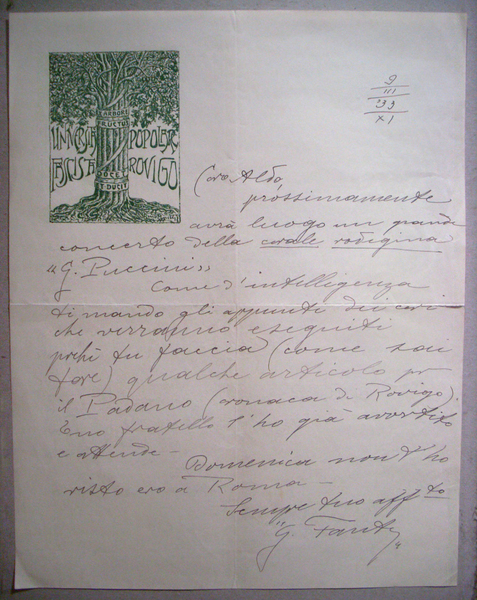 ARBORE
FRUCTUS
DOCET
ET DUCIT
UNIVERSITÀ POPOLARE
FASCISTA ROVIGO
9
III
33
XI
Caro Aldo,
prossimamente
avrà luogo un grande
concerto della corale rodigina
"G. Puccini"
Come d'intelligenza
ti mando gli appunti dei cori
che verranno eseguiti
perchè tu faccia (come sai
fare) qualche articolo pr
il Padano (cronaca di Rovigo).
Tuo fratello l'ho già avvertito
e attende -
Domenica non t'ho
visto ero a Roma -
Sempre tuo aff to
"G. Fante"